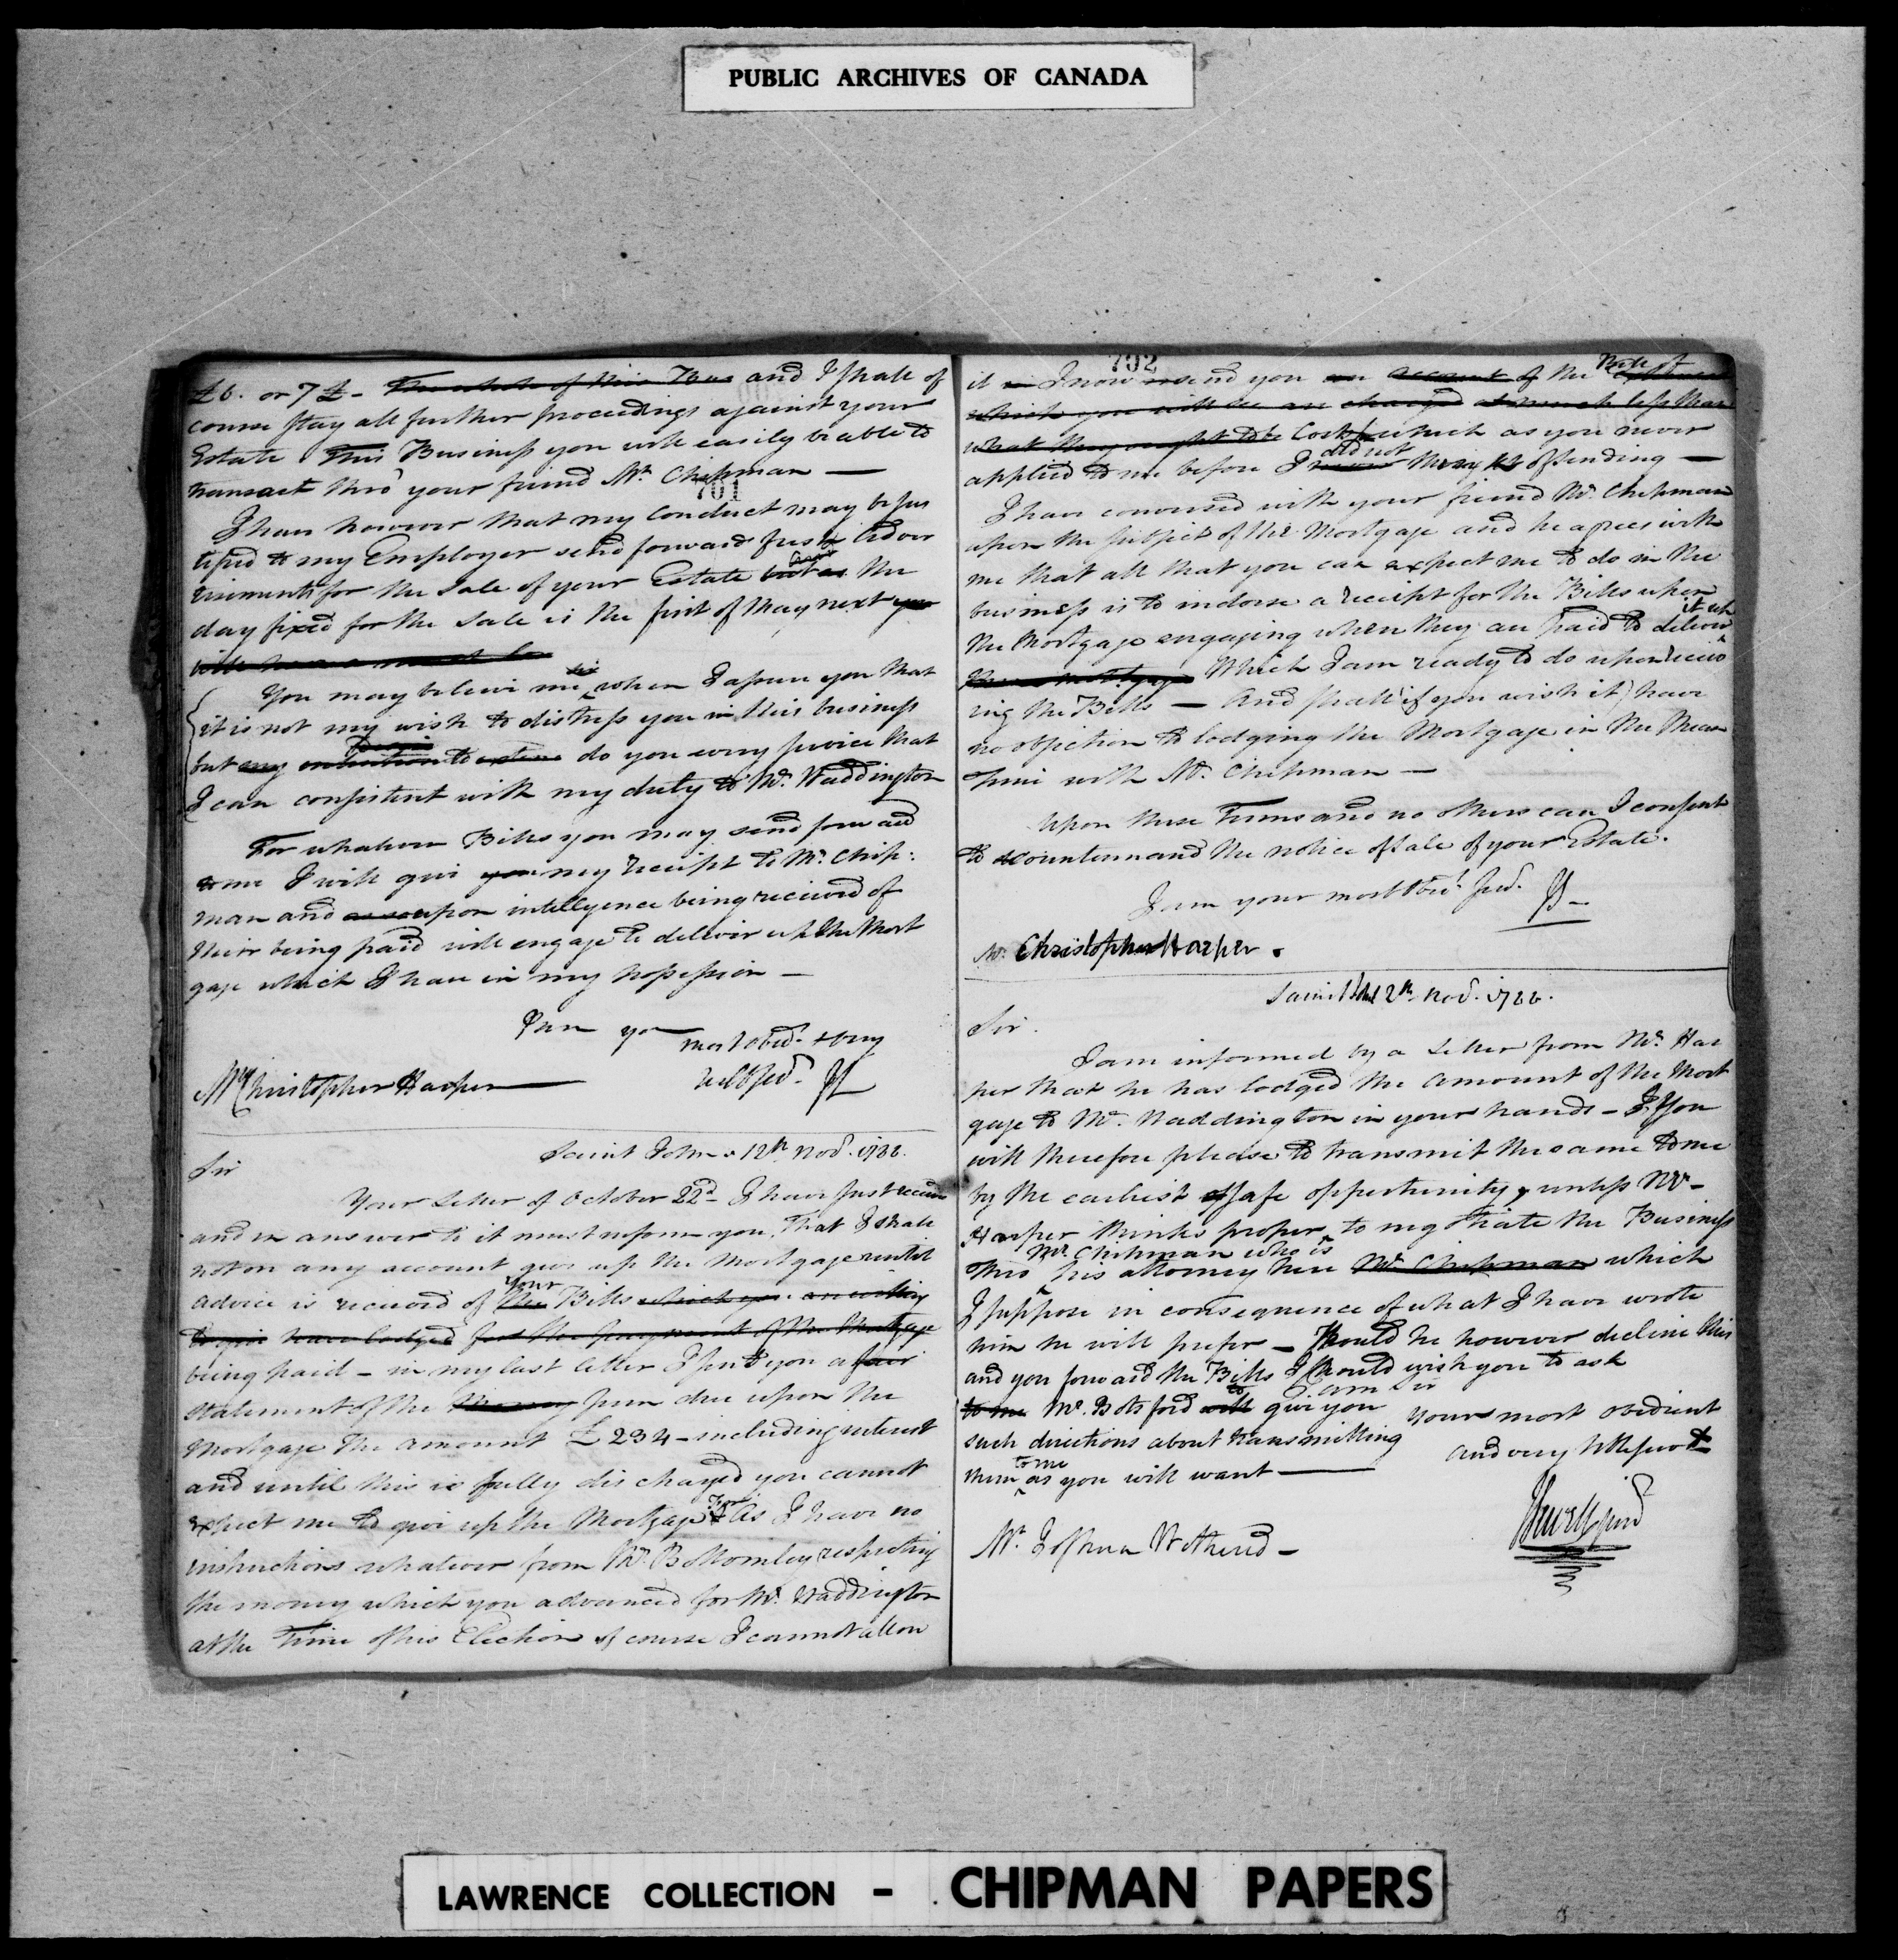 PUBLIC ARCHIVES OF CANADA
£6. or 7£ - The whole of this and I shall of
course stay all further proceedings against your
Estate This Business you will easily be able to
transact thro' your friend Mr. Chipman —
701
I have however that my Conduct may be jus
tified to my Employer send forward fresh Adver
tisements for the Sale of your Estate but as and the
day fixed for the Sale is the first of May next
You may believe me Sir when I assure you that
it is not my wish to distress you in this business
but my intention to do you every service that
I can consistent with my duty to Mr. Waddington
For whatever Bills you may send forward
to me I will give you my receipt to Mr. Chip:
man and upon intelligence being received of
their being paid will engage to deliver up the Mort
gage which I have in my possession —
I am your most obed. & very
Mr Christopher Harper — hble Serv.
Saint John 12th Nov. 1788.
Sir
Your Letter of October 22d I have just receiv
and in answer to it must inform you, that I shall
not on any account give up the Mortgage until
advice is received of the your Bills which you are willing
to give have lodged for the payment of the Mortgage
being paid - in my last letter I sent you a fair
statement of the Money sum due upon the
Mortgage the amount £234 - including interest
and until this is fully discharged you cannot
expect me to give up the Mortgage As I have no
instructions whatever from Mr. Bottomley respecting
the money which you advanced for Mr. Waddington
at the Time of his Election of course I cannot allow
702
it I now send you an account of the Note of
which you will see are charged at much less than
what they ought to be Costs which as you never
applied to me before I never did not think of sending —
I have conversed with your friend Mr. Chipman
upon the subject of the Mortgage and he agrees with
me that all that you can expect me to do in the
business is to indorse a receipt for the Bills upon
the Mortgage engaging when they are paid to deliver it up
the mortgage Which I am ready to do upon receiv
ing the Bills — And shall (if you wish it) have
no objection to lodging the Mortgage in the Mean
time with Mr. Chipman —
Upon these Terms and no others can I consent
to countermand the notice of Sale of your Estate.
I am your most Obt. Serv.
Mr. Christopher Harper.
Saint John 12th Nov. 1788.
Sir.
I am informed by a Letter from Mr. Har
per that he has lodged the amount of the Mort
gage to Mr. Waddington in your hands - You
will therefore please to transmit the same to me
by the earliest safe opportunity, unless Mr.
Harper thinks proper to negotiate the Business
thro Mr. Chipman who is his attorney here Mr. Chipman which
I suppose in consequence of what I have wrote
him he will prefer - Should he however decline this
and you forward the Bills I should wish you to ask
to me Mr. Botsford will to give you
such directions about transmitting
them to me as you will want —
I am Sir
Your most obedient
and very hble servt
Mr. Joshua Wetherd -
LAWRENCE COLLECTION - CHIPMAN PAPERS